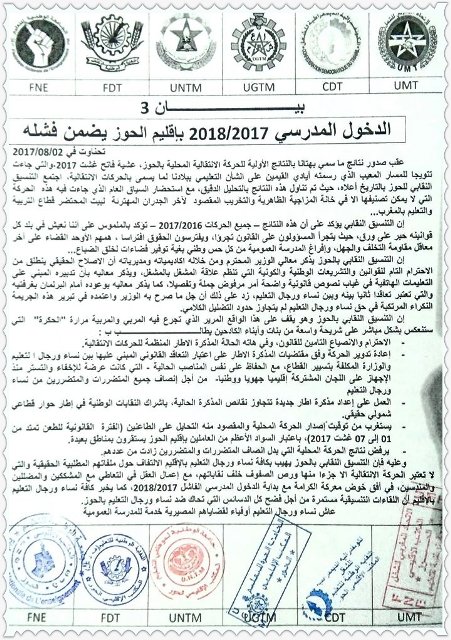 FNE FDT UNTM UGTM CDT UMT
بيـــــــان 3
الدخول المدرسي 2018/2017 بإقليم الحوز يضمن فشله
تحناوت في 2017/08/02
عقب صدور نتائج ما سمي بهتانا بالنتائج الأولية للحركة الانتقالية المحلية بالحوز، عشية فاتح غشت 2017، والتي جاءت
تتويجا للمسار المعيب الذي رسمته أيادي القيمين على الشأن التعليمي ببلادنا لما يسمى بالحركات الانتقالية، اجتمع التنسيق
النقابي للحوز بالتاريخ أعلاه، حيث تم تناول هذه النتائج بالتحليل الدقيق، مع استحضار السياق العام الذي جاءت فيه هذه الحركة
التي لا يمكن تصنيفها الا في خانة المزاجية الظاهرية والتخريب المقصود لآخر الجدران المهترئة لبيت المحتضر قطاع التربية
والتعليم بالمغرب...
إن التنسيق النقابي يؤكد على أن هذه النتائج – جميع الحركات 2017/2016 – تؤكد بالملموس على أننا نعيش في بلد كل
قوانينه حبر على ورق، حيث يتجرأ المسؤولون على القانون تجرؤا، ويفترسون الحقوق افتراسا، همهم الأوحد القضاء على آخر
معاقل مقاومة التخلف والجهل، وإفراغ المدرسة العمومية من كل حس وطني بغية توفير فضاءات لخلق الضباع...
إن التنسيق النقابي بالحوز يذكر معالي الوزير المحترم ومن خلاله اكاديمياته ومديرياته أن الاصلاح الحقيقي ينطلق من
الاحترام التام للقوانين والتشريعات الوطنية والكونية التي تنظم علاقة المشغل بالمشغل، ويذكر معاليه بأن تدبيره المبني على
التعليمات الهاتفية في غياب نصوص قانونية واضحة أمر مرفوض جملة وتفصيلا، كما يذكر معاليه بوعوده أمام البرلمان بغرفتيه
والتي تعتبر تعاقدا ثانيا بينه وبين نساء ورجال التعليم، زد على ذلك أن جل ما صرح به الوزير واعتمده في تبرير هذه الجريمة
النكراء المرتكبة في حق نساء ورجال التعليم لم يتجاوز حدود التضليل الكلامي.
إن التنسيق النقابي بالحوز وهو يقف على هذا الواقع المرير الذي تجرع فيه المربي والمربية مرارة "الحكرة" التي
ستنعكس بشكل مباشر على شريحة واسعة من بنات وأبناء الكادحين يطالب ب :
- الاحترام والانصياع التامين للقانون، وفي هاته الحالة المذكرة الاطار المنظمة للحركات الانتقالية
- إعادة تدوير الحركة وفق مقتضيات المذكرة الاطار على اعتبار التعاقد القانوني المبني عليها بين نساء ورجال التعليم
والوزارة المكلفة بتسيير القطاع، مع الحفاظ على نفس المناصب الحالية - التي كانت عرضة للإخفاء والتستر منذ
الإجهاز على اللجان المشتركة إقليميا جهويا ووطنيا- من أجل إنصاف جميع المتضررات والمتضررين من نساء
ورجال التعليم
- العمل على إعداد مذكرة إطار جديدة تتجاوز نقائص المذكرة الحالية، باشراك النقابات الوطنية في إطار حوار قطاعي
شمولي حقيقي.
- يستغرب من توقيت إصدار الحركة المحلية والمقصود منه التحايل على الطاعنين (الفترة القانونية للطعن تمتد من
01 إلى 07 غشت 2017)، باعتبار السواد الأعظم من العاملين بإقليم الحوز يستقرون بمناطق بعيدة.
- يرفض نتائج الحركة المحلية التي بدل إنصاف المتضررات والمتضررين زادت من عددهم.
وعليه فإن التنسيق النقابي بالحوز يهيب بكافة نساء ورجال التعليم بالاقليم الالتفاف حول ملفاتهم المطلبية الحقيقية والتي
لا تعتبر الحركة الانتقالية الا جزءا منها ورص الصفوف خلف نقاباتهم، مع إعمال العقل في التعاطي مع المشككين والمضللين
في أفق خوض معركة الكرامة مع بداية الدخول المدرسي الفاشل 2018/2017، كما يخبر كافة نساء ورجال التعليم
أن اللقاءات التنسيقية مستمرة من أجل فضح كل الدسائس التي تحاك ضد نساء ورجال التعليم بالحوز.
عاش نساء ورجال التعليم أوفياء لقضاياهم المصيرية خدمة للمدرسة العمومية
FNE FDT UNTM UGTM CDT UMT